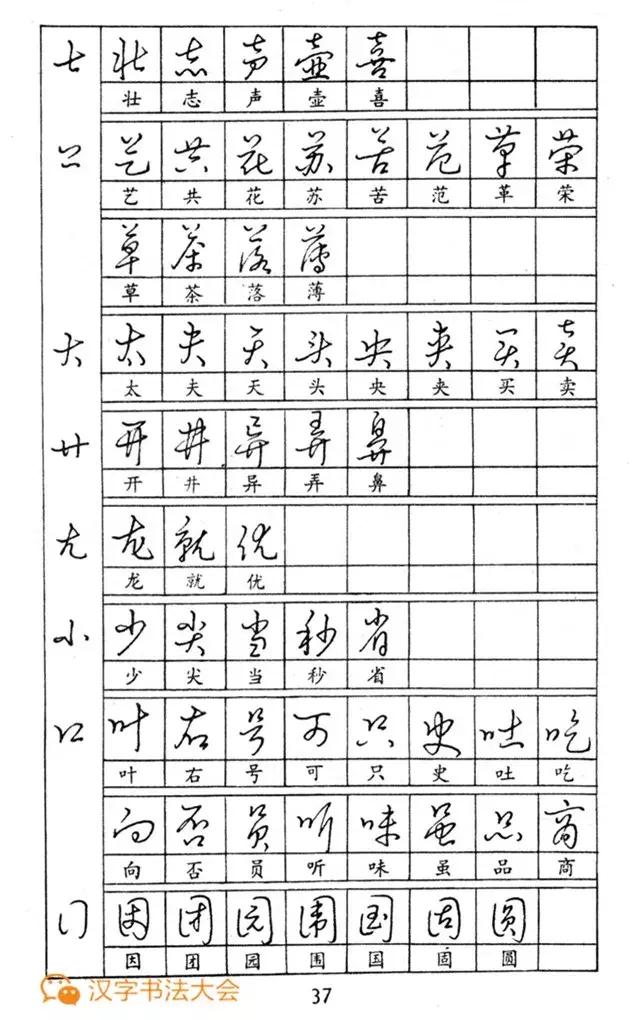 士 壮 志 声 壶 喜
壮 志 声 壶 喜
艹 艺 共 花 苏 苦 范 革 荣
艺 共 花 苏 苦 范 革 荣
草 茶 落 薄
草 茶 落 薄
大 太 夫 天 头 央 夹 买 卖
太 夫 天 头 央 夹 买 卖
廾 开 井 异 弄 鼻
开 井 异 弄 鼻
尤 龙 就 优
龙 就 优
小 少 尖 当 秒 省
少 尖 当 秒 省
口 叶 右 号 可 只 史 吐 吃
叶 右 号 可 只 史 吐 吃
向 否 员 听 味 虽 品 商
向 否 员 听 味 虽 品 商
囗 因 团 园 围 国 固 圆
因 团 园 围 国 固 圆
汉字书法大会
37